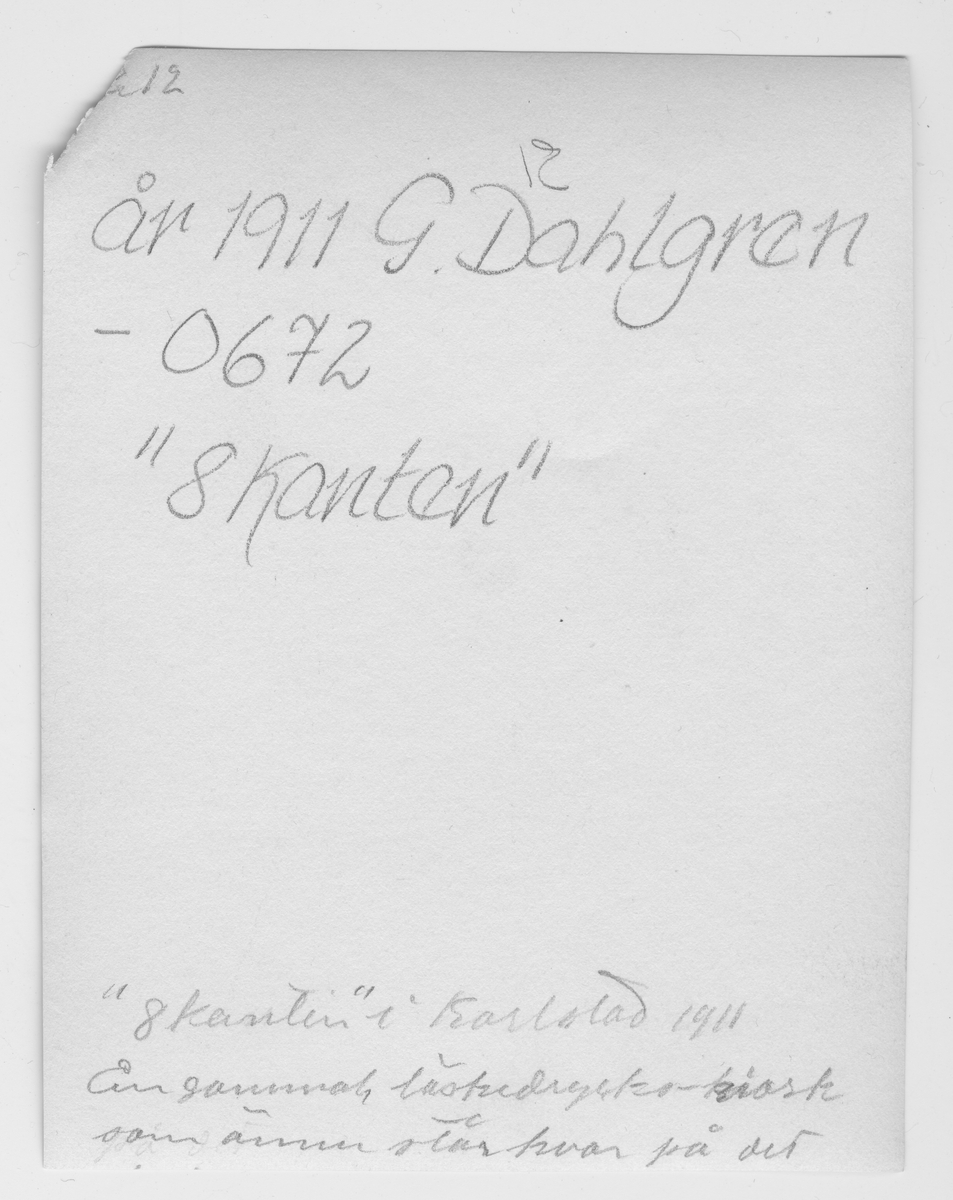 12
12
år 1911 G. Dahlgren
- 0672
"8kanten"
"8kanten" i Karlstad 1911
En gammal, läskedrycks-kiosk
som ännu står kvar på det